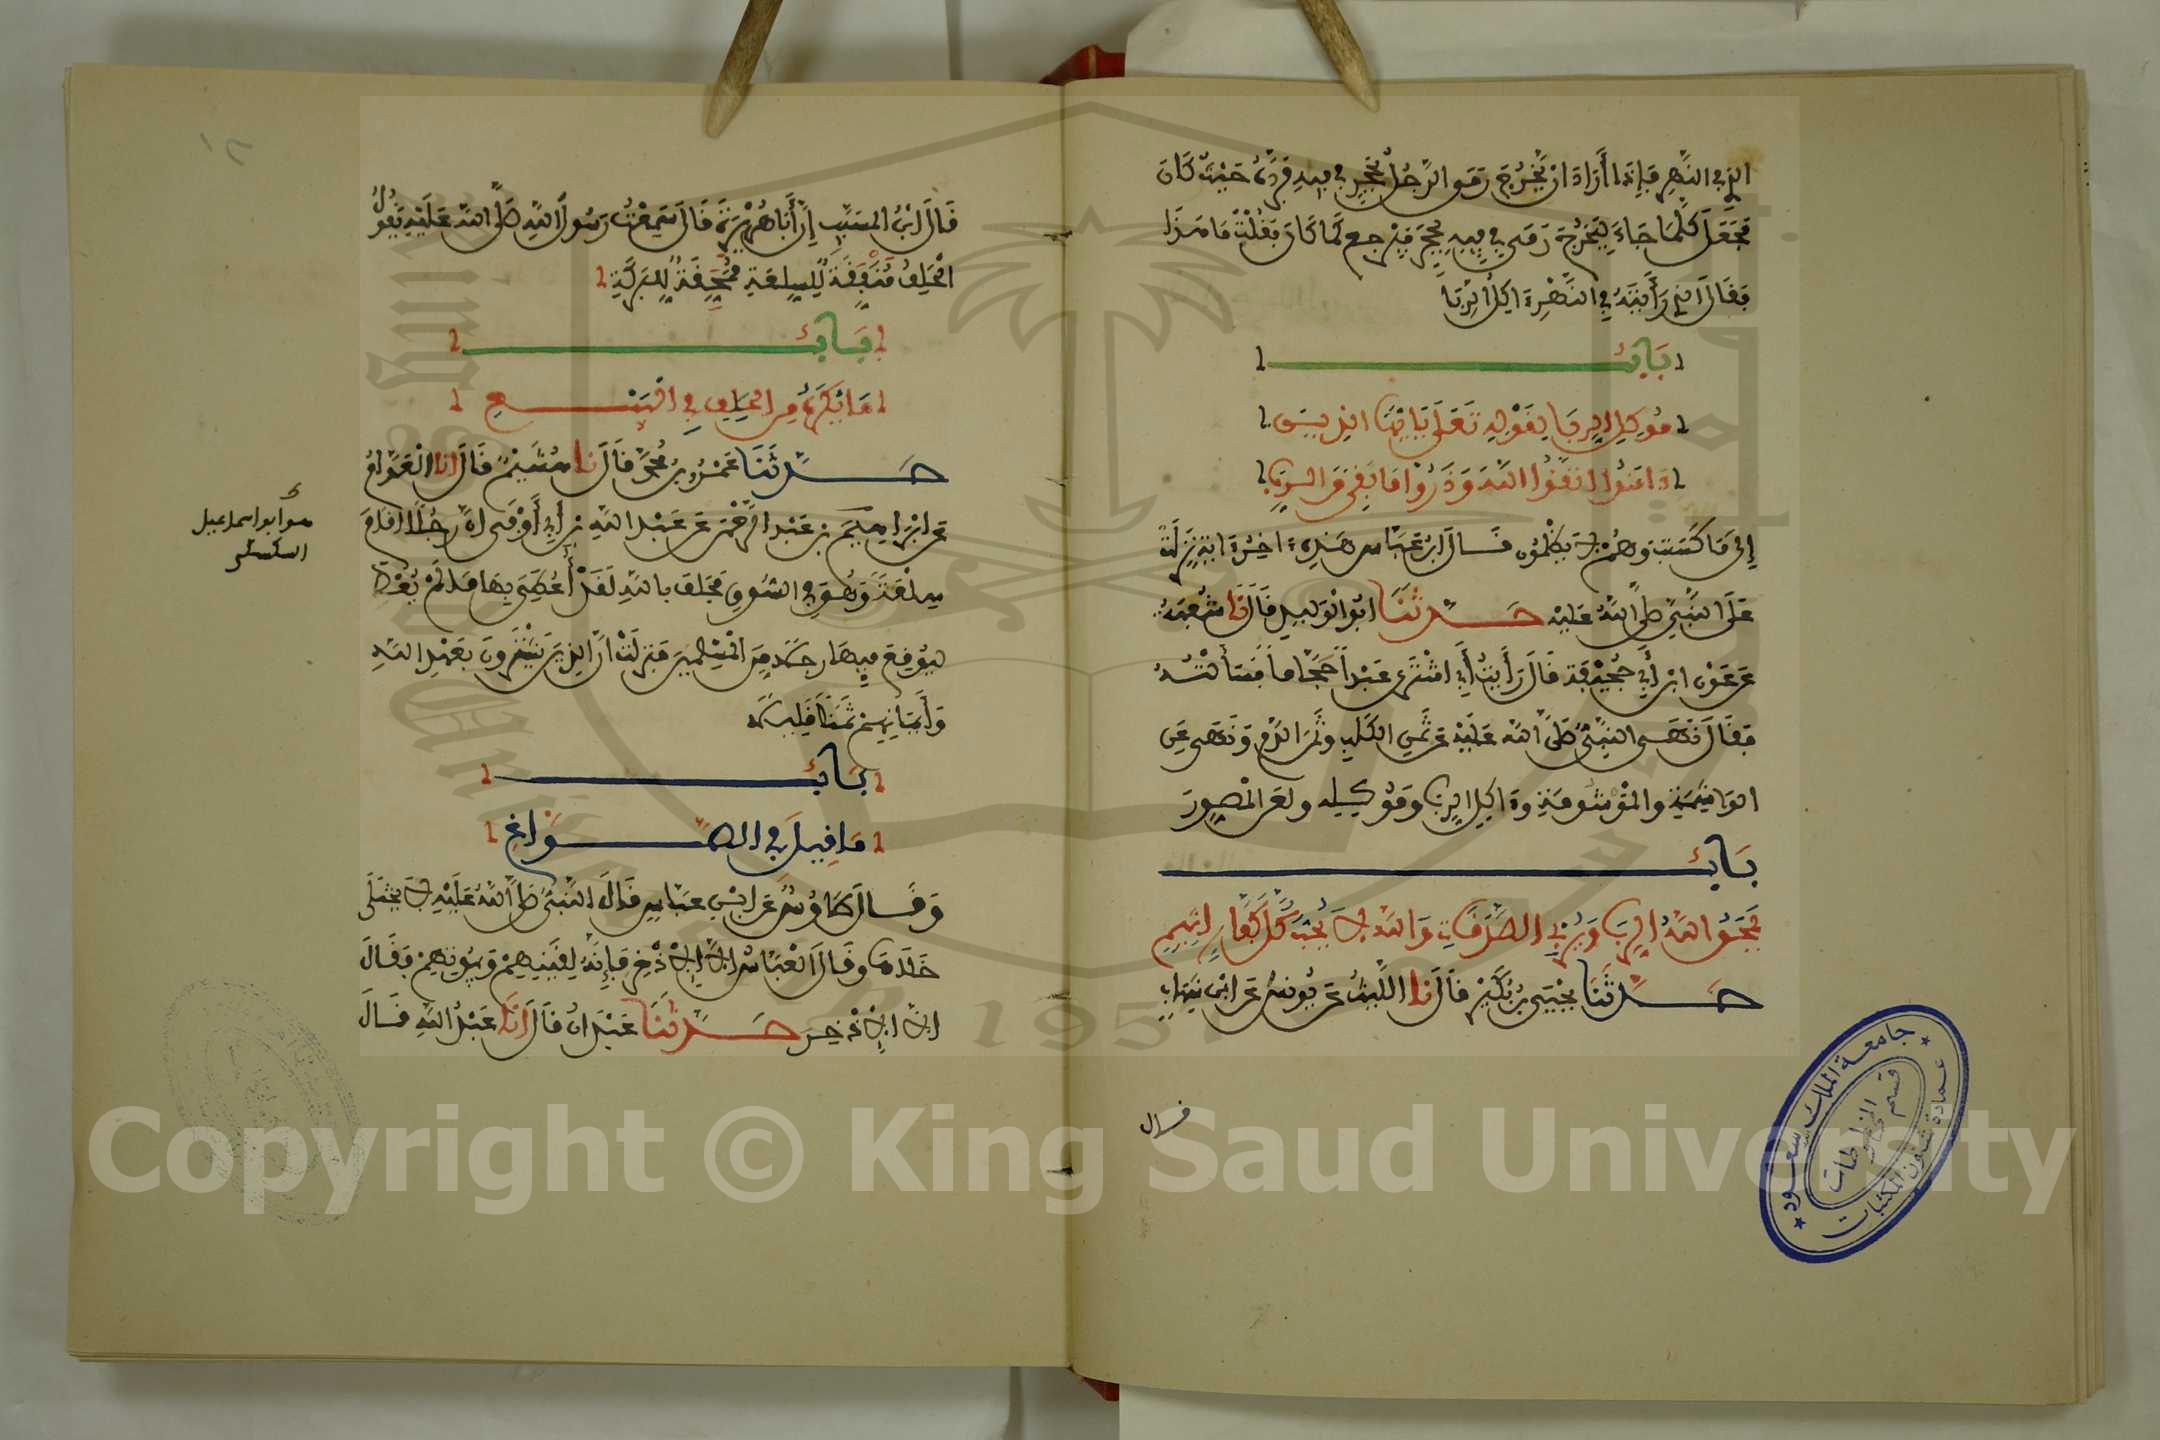 الذي في النهر فإذا أراد أن يخرج رمى الرجل بحجر في فيه فرده حيث كان
فجعل كلما جاء ليخرج رمى في فيه بحجر فيرجع كما كان فقلت ما هذا
فقال الذي رأيته في النهر ءاكل الربا
باب
موكل الربا لقوله تعلى يا أيها الذين
ءامنوا اتقوا الله وذروا ما بقي من الربا
إلى ما كسبت وهم لا يظلمون قال ابن عباس هذه ءاخر ءاية نزلت
على النبي صلى الله عليه حدثنا أبو الوليد قال نا شعبة
عن عون ابن أبي جحيفة قال رأيت أبي اشترى عبدا حجاما فسألته
فقال نهى النبي صلى الله عليه عن ثمن الكلب وثمن الدم ونهى عن
الواشمة والموشومة وءاكل الربا وموكله ولعن المصور
باب
يمحق الله الربا ويربي الصدقات والله لا يحب كل كفار أثيم
حدثنا يحيى بن بكير قال نا الليث عن يونس عن ابن شهاب
قال
قال ابن المسيب إن أبا هريرة قال سمعت رسول الله صلى الله عليه يقول
الحلف منفقة للسلعة ممحقة للبركة
باب
ما يكره من الحلف في البيع
حدثنا عمرو بن محمد قال نا هشيم قال أنا العوام
عن إبراهيم بن عبد الرحمن عن عبد الله بن أبي أوفى أن رجلا أقام
سلعة وهو في السوق فحلف بالله لقد أعطى بها ما لم يعط
ليوقع فيها رجلا من المسلمين فنزلت إن الذين يشترون بعهد الله
وأيمانهم ثمنا قليلا
هو أبو إسماعيل
السكسكي
باب
ما قيل في الصواغ
وقال طاوس عن ابن عباس قال النبي صلى الله عليه لا يختلى
خلاها وقال العباس إلا الإذخر فإنه لقينهم وبيوتهم فقال
إلا الإذخر حدثنا عبدان قال أنا عبد الله قال
جامعة الملك سعود
عمادة شئون المكتبات
قسم المخطوطات
1957
Copyright © King Saud University